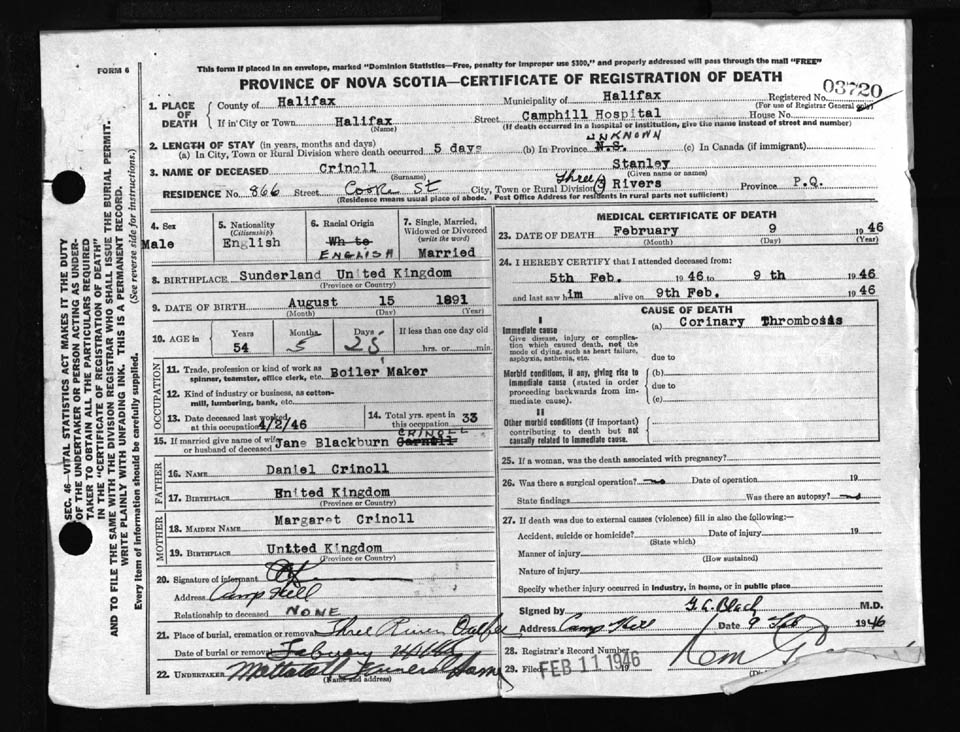 This form if placed in an envelope, marked "Dominion Statistics—Free, penalty for improper use $300," and properly addressed will pass through the mail "FREE"
FORM 6
PROVINCE OF NOVA SCOTIA—CERTIFICATE OF REGISTRATION OF DEATH
03720
1. PLACE OF DEATH
County of Halifax Municipality of Halifax Registered No.
(For use of Registrar General only)
If in City or Town Halifax Street Camphill Hospital House No.
(Name) (If death occurred in a hospital or institution, give the name instead of street and number)
UNKNOWN
2. LENGTH OF STAY (in years, months and days)
(a) In City, Town or Rural Division where death occurred 5 days (b) In Province N.S. (c) In Canada (if immigrant)
3. NAME OF DECEASED Crinoll Stanley
(Surname) (Given name or names)
RESIDENCE No. 866 Street Cooke St City, Town or Rural Division Three Rivers Province P.Q.
(Residence means usual place of abode. Post Office Address for residents in rural parts not sufficient)
4. Sex
Male
5. Nationality
(Citizenship)
English
6. Racial Origin
Wh te
ENGLISH
7. Single, Married, Widowed or Divorced
(write the word)
Married
8. BIRTHPLACE Sunderland United Kingdom
(Province or Country)
9. DATE OF BIRTH August 15 1891
(Month) (Day) (Year)
10. AGE in
Years Months Days If less than one day old
54 5 25 hrs. or min.
OCCUPATION
11. Trade, profession or kind of work as spinner, teamster, office clerk, etc. Boiler Maker
12. Kind of industry or business, as cotton-mill, lumbering, bank, etc.
13. Date deceased last worked at this occupation 4/2/46
14. Total yrs. spent in this occupation 33
CRINOLL
15. If married give name of wife or husband of deceased Jane Blackburn
FATHER
16. NAME Daniel Crinoll
17. BIRTHPLACE Enited Kingdom
(Province or Country)
MOTHER
18. MAIDEN NAME Margaret Crinoll
19. BIRTHPLACE United Kingdom
(Province or Country)
20. Signature of informant
Address Camp Hill
Relationship to deceased NONE
21. Place of burial, cremation or removal Three Rivers
Date of burial or removal
22. UNDERTAKER Mattatall Funeral Home
(Name and address)
MEDICAL CERTIFICATE OF DEATH
23. DATE OF DEATH February 9 1946
(Month) (Day) (Year)
24. I HEREBY CERTIFY that I attended deceased from:
5th Feb. 1946 to 9 th 1946
and last saw him alive on 9th Feb. 1946
CAUSE OF DEATH
I
Immediate cause (a) Corinary Thrombosis
Give disease, injury or complication which caused death, not the mode of dying, such as heart failure, asphyxia, asthenia, etc.
due to
Morbid conditions, if any, giving rise to immediate cause (stated in order proceeding backwards from immediate cause).
(b)
due to
(c)
II
Other morbid conditions (if important) contributing to death but not causally related to immediate cause.
25. If a woman, was the death associated with pregnancy?
26. Was there a surgical operation? no Date of operation 19
State findings Was there an autopsy? no
27. If death was due to external causes (violence) fill in also the following:—
Accident, suicide or homicide? Date of injury 19
(State which)
Manner of injury
(How sustained)
Nature of injury
Specify whether injury occurred in industry, in home, or in public place
Signed by G. C. Black M.D.
Address Camp Hill Date 9 Feb 1946
28. Registrar's Record Number
29. Filed FEB 11 1946 19
SEC. 46—VITAL STATISTICS ACT MAKES IT THE DUTY
OF THE UNDERTAKER OR PERSON ACTING AS UNDER-
TAKER TO OBTAIN ALL THE PARTICULARS REQUIRED
IN THE "CERTIFICATE OF REGISTRATION OF DEATH"
AND TO FILE THE SAME WITH THE DIVISION REGISTRAR WHO SHALL ISSUE THE BURIAL PERMIT.
WRITE PLAINLY WITH UNFADING INK. THIS IS A PERMANENT RECORD.
Every item of information should be carefully supplied. (See reverse side for instructions.)